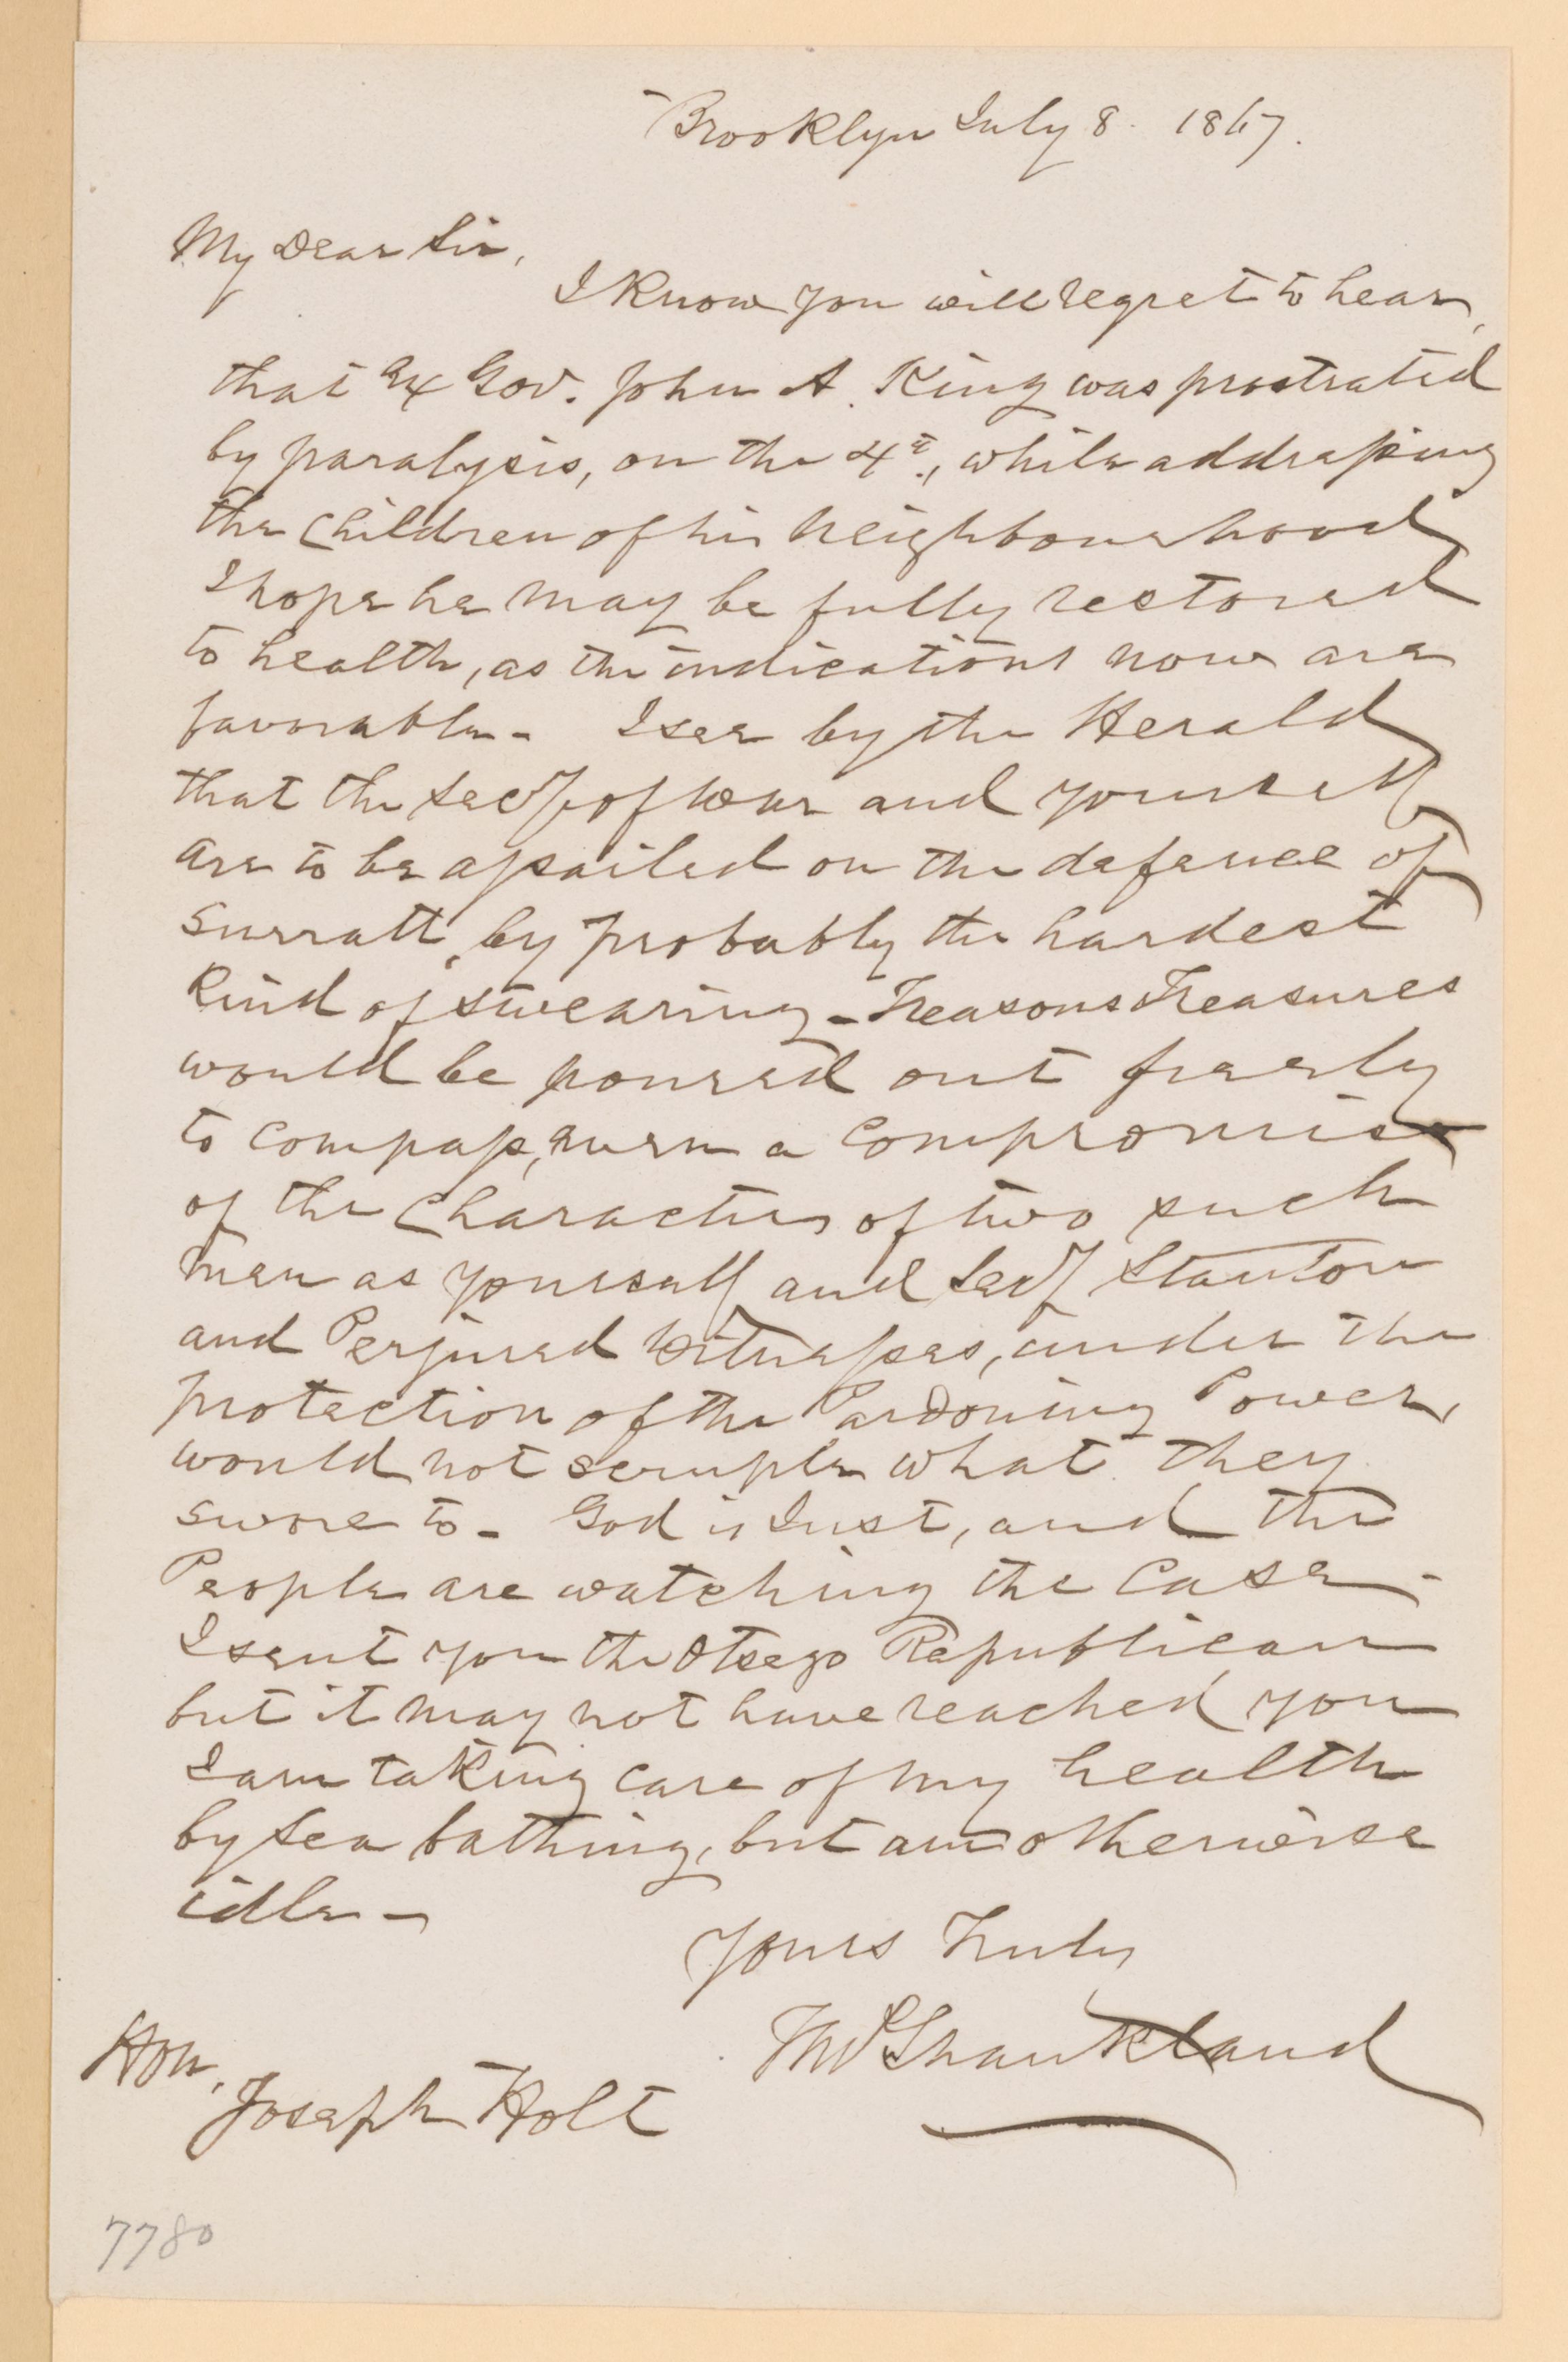 Brooklyn July 8. 1867.
My Dear Sir,
I Know you will regret to hear,
that Ex Gov. John A. King was prostrated
by paralysis, on the 4th, while addressing
the children of his neighbourhood
I hope he may be fully restored
to health, as the indications now are
favorable - I see by the Herald
that the Secy of War and yourself
are to be assailed on the defence of
Surratt, by probably the hardest
Kind of swearing - Treasons Treasures
would be poured out freely
to compass, even a compromise
of the Characters of two such
men as yourself and Secy Stanton
and Perjured Witnesses, under the
protection of the Pardoning Power,
would not scruple what they
swore to - God is Just, and the
People are watching the Case -
I sent you the Otsego Republican
but it may not have reached you
I am taking care of my health
by Sea bathing, but am otherwise
idle -
Yours Truly
Shankland
Hon.
Joseph Holt
7780